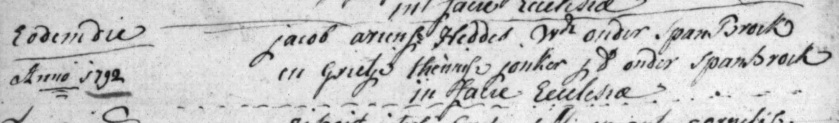 in facie Ecclesiæ
Eodem die jacob ariensz Heddes Wr onder Span Brock
Anno 1792 en Grietje theunisse jonker jd onder Spanbrock
in facie Ecclesiæ